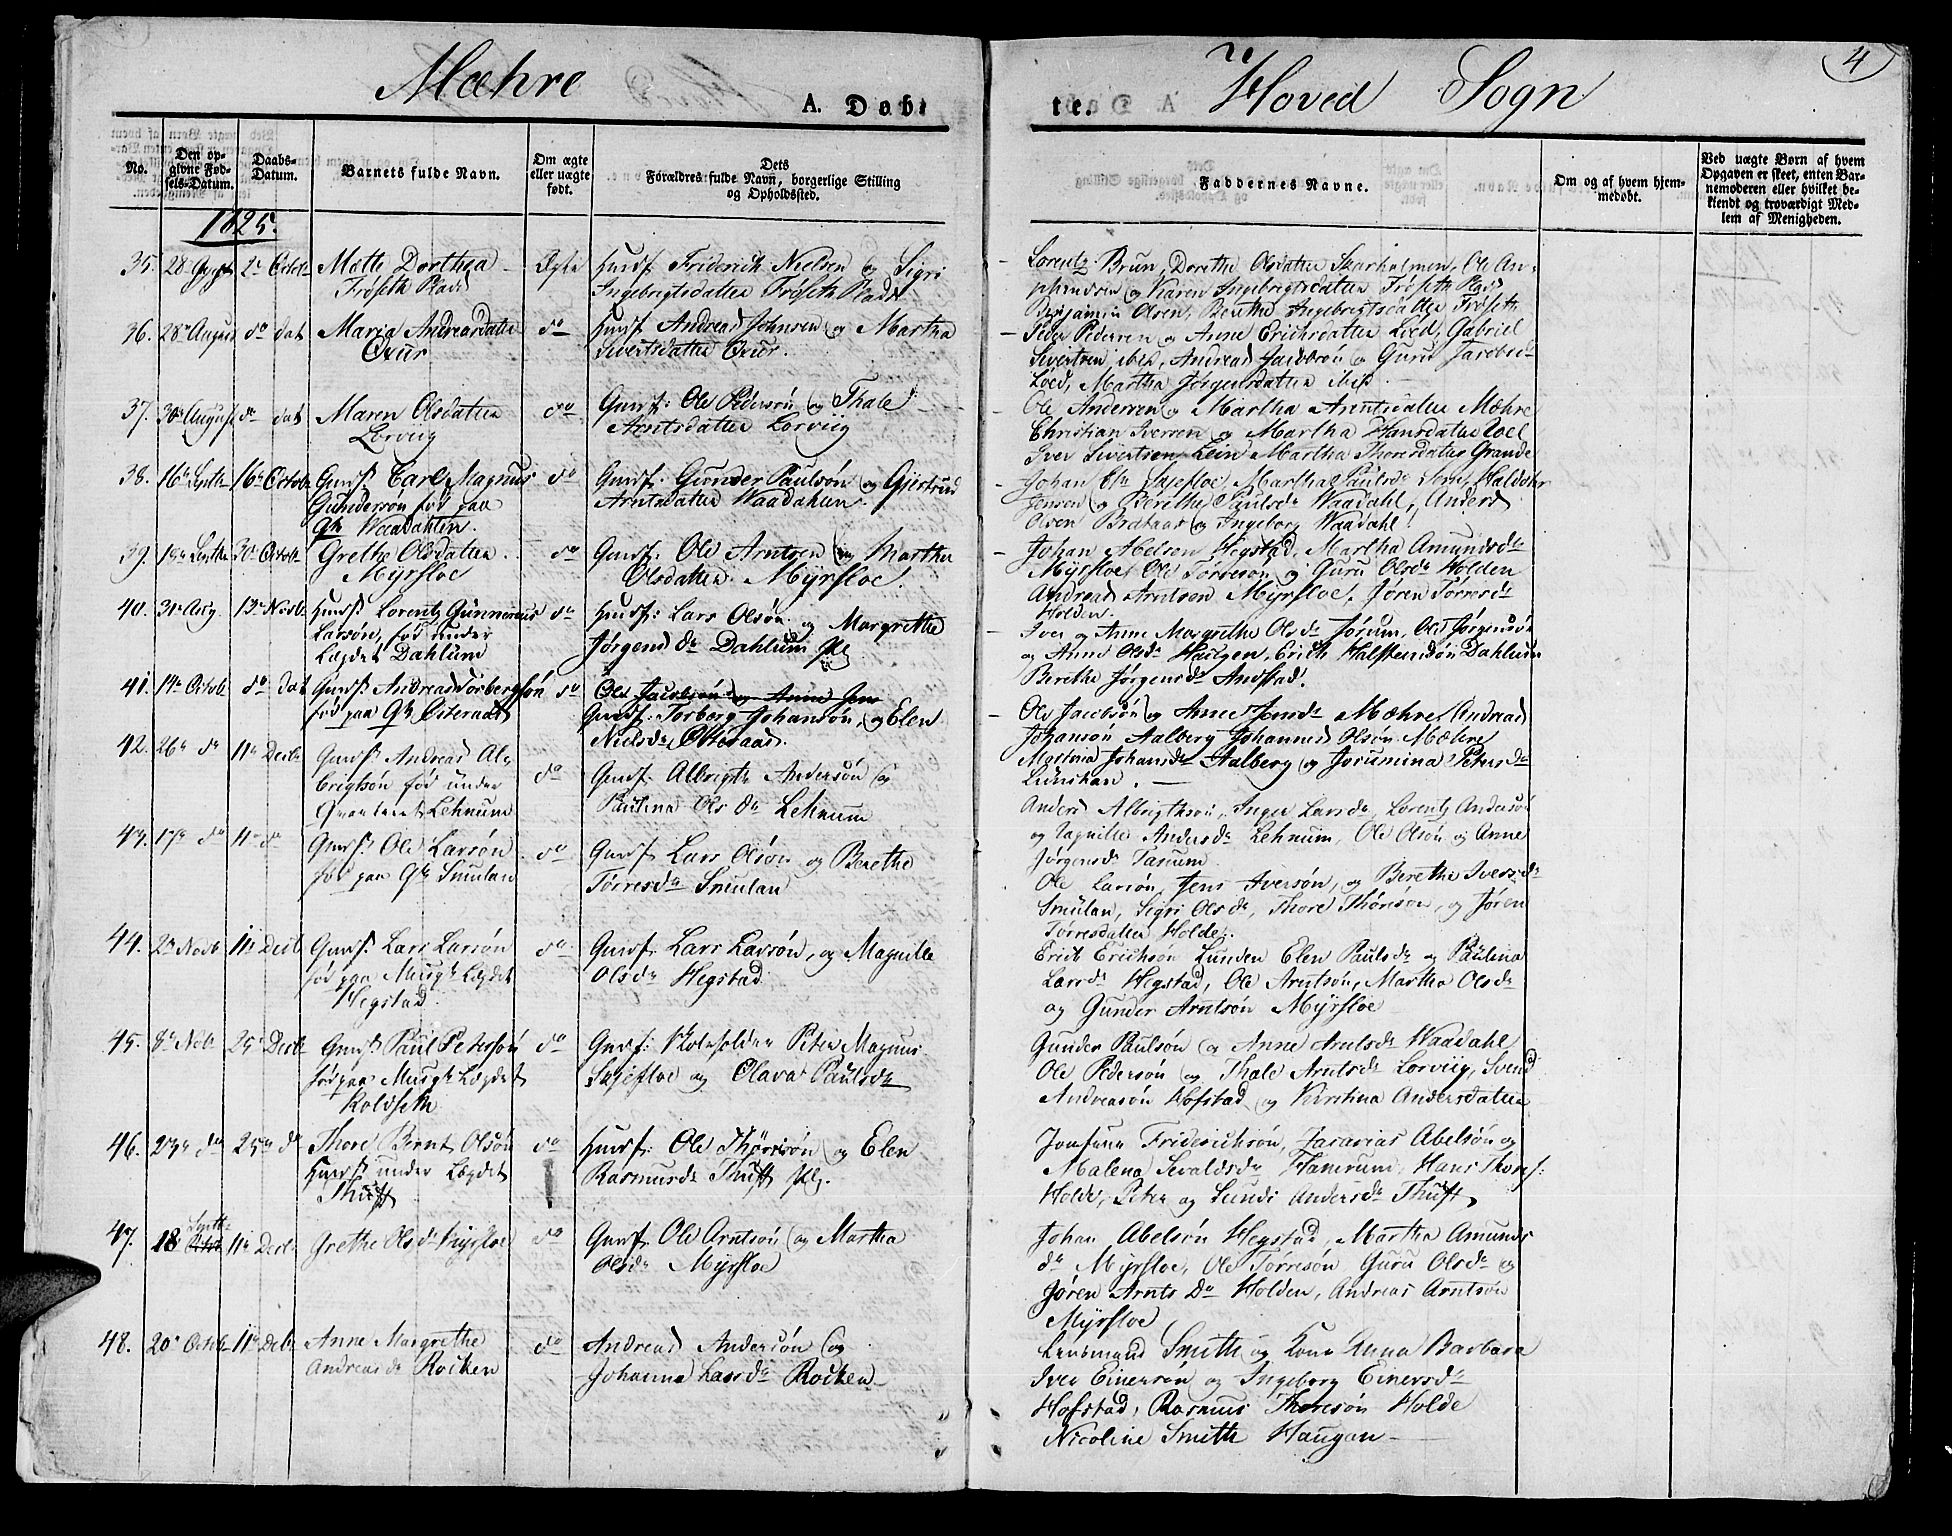 Mæhre
Hoved Sogn
4
A. Døbte.
No.
Den opgivne Fødsels-Datum.
Daabs-Datum.
Barnets fulde Navn.
Om ægte eller uægte født.
Dets Forældres fulde Navn, borgerlige Stilling og Opholdssted.
Faddernes Navne.
Om og af hvem hjemmedøbt.
Ved uægte Børn af hvem Opgaven er skeet, enten Barnemoderen eller hvilket bekiendt og troværdigt Medlem af Menigheden.
1825.
35. 2de Octob
Mette Dorthea
Frøseth Plads
Ægte
Huusf Friderich Nielsen og Sigri
Ingebrigtsdatter Frøseth Plads
Lorentz Brun, Dorethe Olsdatter Skarholmen, Ole
og Karen Ingebrigtsdatter Frøseth Plads
Benjamin Olsen, Berethe Ingebrigtsdatter Frøseth
36. 28de August do dat
Maria Andreasdatter
do
Huusf Andreas Johnsen og Martha
Sivertsdatter
Peder Pedersen og Anne Erichsdatter Løed, Gabriel
Sivertsen ibid, Andreas Jacobsøn og Guru Jacobsd
Løed, Martha Jørgensdatter ibid.
37. 30te August do dat
Maren Olsdatter
Lorviig
do
Gmdf: Ole Pedersøn og Thale
Arntsdatter Lorviig
Ole Andersen og Martha Arntsdatter Mæhre
Christian Iversen og Martha Hansdatter Loel
Iver Sivertsen Lein Martha Thoresdatter Grande
38. 16de Septbr 16de Octob
Gmdf: Carl Magnus
Gundersøn fød paa
Gd Waadahlen.
do
Gmdf: Gunder Paulsøn og Gjertrud
Arntsdatter Waadahlen
Johan Skjefloe, Martha Paulsdr
Jensen og Berethe Paulsdr Waadahl, Anders
Olsen Brataas og Ingeborg Waadahl
39. 18de Septbr 30te Octob
Grethe Olsdatter
Myrfloe
do
Gmdf: Ole Arntsen og Martha
Olsdatter Myrfloe
Johan Abelsen Hegstad, Martha Amundsdr
Myrfloe, Ole Torresøn og Guru Olsdr Holden
Andreas Arntsen Myrfloe, Jøren Torresdr
Holden.
40. 31te Aug. 13de Novb
Huusf: Lorentz Gunnerius
Larsøn, fød under
Lægdet Dahlum
do
Huusf: Lars Olsøn og Margrethe
Jørgens dr Dahlum Pl
Iver og Anne Margrethe Olsdr Jørum, Ole Jørgensøn
og Anne Olsdr Haugen, Erich Halstensøn Dahlum
Berethe Jørgensdr Andstad.
41. 14de Octob do dat
Gmdf: Andreas Torbergsøn
fød paa Gd Østeraas
do
Ole Jacobsøn og Anne Jens
Gmdf: Torberg Johansøn, og Elen
Nielsdr Østeraas.
Ole Jacobsøn og Anne Jensdr Mæhre, Andreas
Johansøn Aalberg Johannes Olsøn Mæhre
Martina Johansdr Aalberg og Jorumina Petersdr
42. 26de do 11te Decbr
Gmdf: Andreas Al-
brigtsøn fød under
Lehnum
do
Gmdf: Albrigt Andersøn og
Paulina Ols dr Lehnum
Anders Albrigtsøn, Inger Larsdr, Lorentz Andersøn
og Andersdr Lehnum, Ole Olsøn og Anne
Jørgensdr Tanum.
43. 17de do 11te do
Gmdf: Ole Larsøn
fød paa Gd Smulan
do
Gmdf Lars Olsøn og Berethe
Torresdr Smulan
Ole Larsøn, Jens Iversøn, og Berethe Iversdr
Smulan, Sigri Olsdr, Thore Thoresøn, og Jøren
Torresdatter Holde.
44. 2den Novb 11te Decbr
Gmdf: Lars Larsøn
fød paa Lægdet
Hegstad
do
Gmdf: Lars Larsøn, og Magnille
Olsdr Hegstad
Erich Erichsøn Lunden Elen Paulsdr og Paulina
Larsdr Hegstad, Ole Arntsøn, Martha Olsdr
og Gunder Arntsøn Myrfloe
45. 8de Nob 25de Decbr
Gmdf: Paul Petersøn
fød paa Lægdet
Roldseth
do
Gmdf: Peter Magnus
Skjefloe og Olava Paulsdr
Gunder Paulsøn og Anne Arntsdr Waadahl
Ole Pedersøn og Thale Arntsdr Lorviig, Svend
Andreasøn Hofstad og Kirstina Andersdatter
46. 23de do 25de do
Thore Bernt Olsøn
Huusf: under Lægdet
Thuft
do
Huusf: Ole Thoresøn og Elen
Rasmusdr Thuft Pl.
Friderichsøn, Zacarias Abelsøn og
Malena Sevaldsdr Hamrum, Hans Thoresf:
Holde, Peter og Andersdr Thuft
47. 18 Septb 11te Decbr
Grethe Olsdr Myrfloe
do
Gmdf. Ole Arntsøn og Martha
Olsdr Myrfloe
Johan Abelsøn Hegstad, Martha Amunds
dr Myrfloe, Ole Torresøn Guru Olsdr og
Jøren Arnts Dr Holden, Andreas Arntsøn
Myrfloe
48. 20de Octob 11te Decb
Anne Margrethe
Andreasdr Rocken
do
Andreas Andersøn og
Johanna Larsdr Rocken
Lensmand Smith og Kone Anna Barbara
Iver Einersøn og Ingeborg Einersdr
Hofstad, Rasmus Thoresøn Holde
Nicoline Smith Haugan